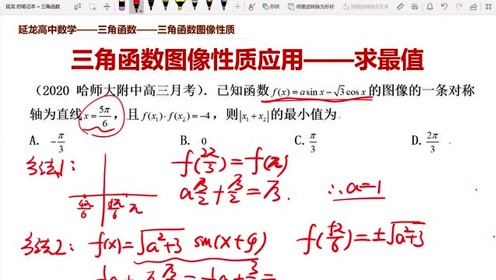 延龙的笔记 » 三角函数
延龙高中数学——三角函数——三角函数图像性质
三角函数图像性质应用——求最值
(2020 哈师大附中高三月考). 已知函数 f(x)=a sin x-√3 cos x 的图像的一条对称
轴为直线 x=5π/6, 且 f(x₁)·f(x₂)=-4, 则|x₁+x₂|的最小值为
A. -π/3 B. 0 C. π/3 D. 2π/3
方法1: f(2π/3)=f(π)
a√3/2+√3/2=√3. ∴a=1
5π/6 π
方法2: f(x)=√a²+3 sin(x+φ) f(5π/6)=±√a²+3